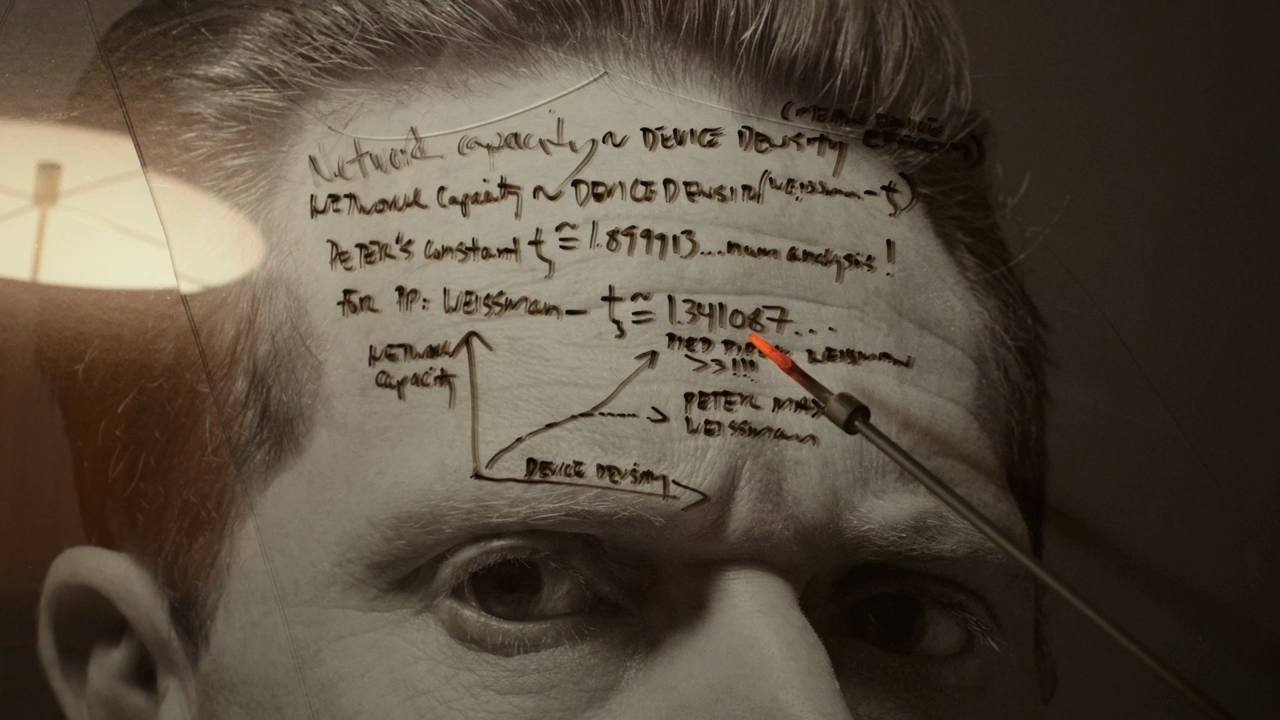 Network capacity ~ DEVICE DENSITY
NETWORK Capacity ~ DEVICE DENSITY(WEISSMAN-ζ)
PETER'S constant ζ ≅ 1.899913...num analysis!
FOR PP: WEISSMAN- ζ ≅ 1.341087...
NETWORK
Capacity
PIED PIPER WEISSMAN
>>!!!
PETER MAX
WEISSMAN
DEVICE DENSITY